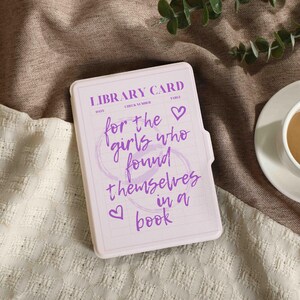 LIBRARY CARD
for the
girls who
found
themselves
in a
book